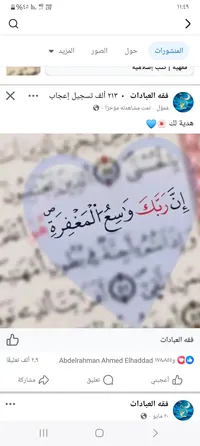 ١١:٤٩
٨٥٪
المنشورات
حول
الصور
المزيد
فقهية | كتب إسلامية
فقه العبادات • ٢١٣ ألف تسجيل إعجاب
مُموَّل • تمت مشاهدته مؤخرًا •
هدية لك
إِنَّ رَبَّكَ وَاسِعُ الْمَغْفِرَةِ
فقه العبادات
Abdelrahman Ahmed Elhaddad
٢٫٩ ألف تعليقًا
أعجبني
تعليق
مشاركة
فقه العبادات
٢٠ مايو •